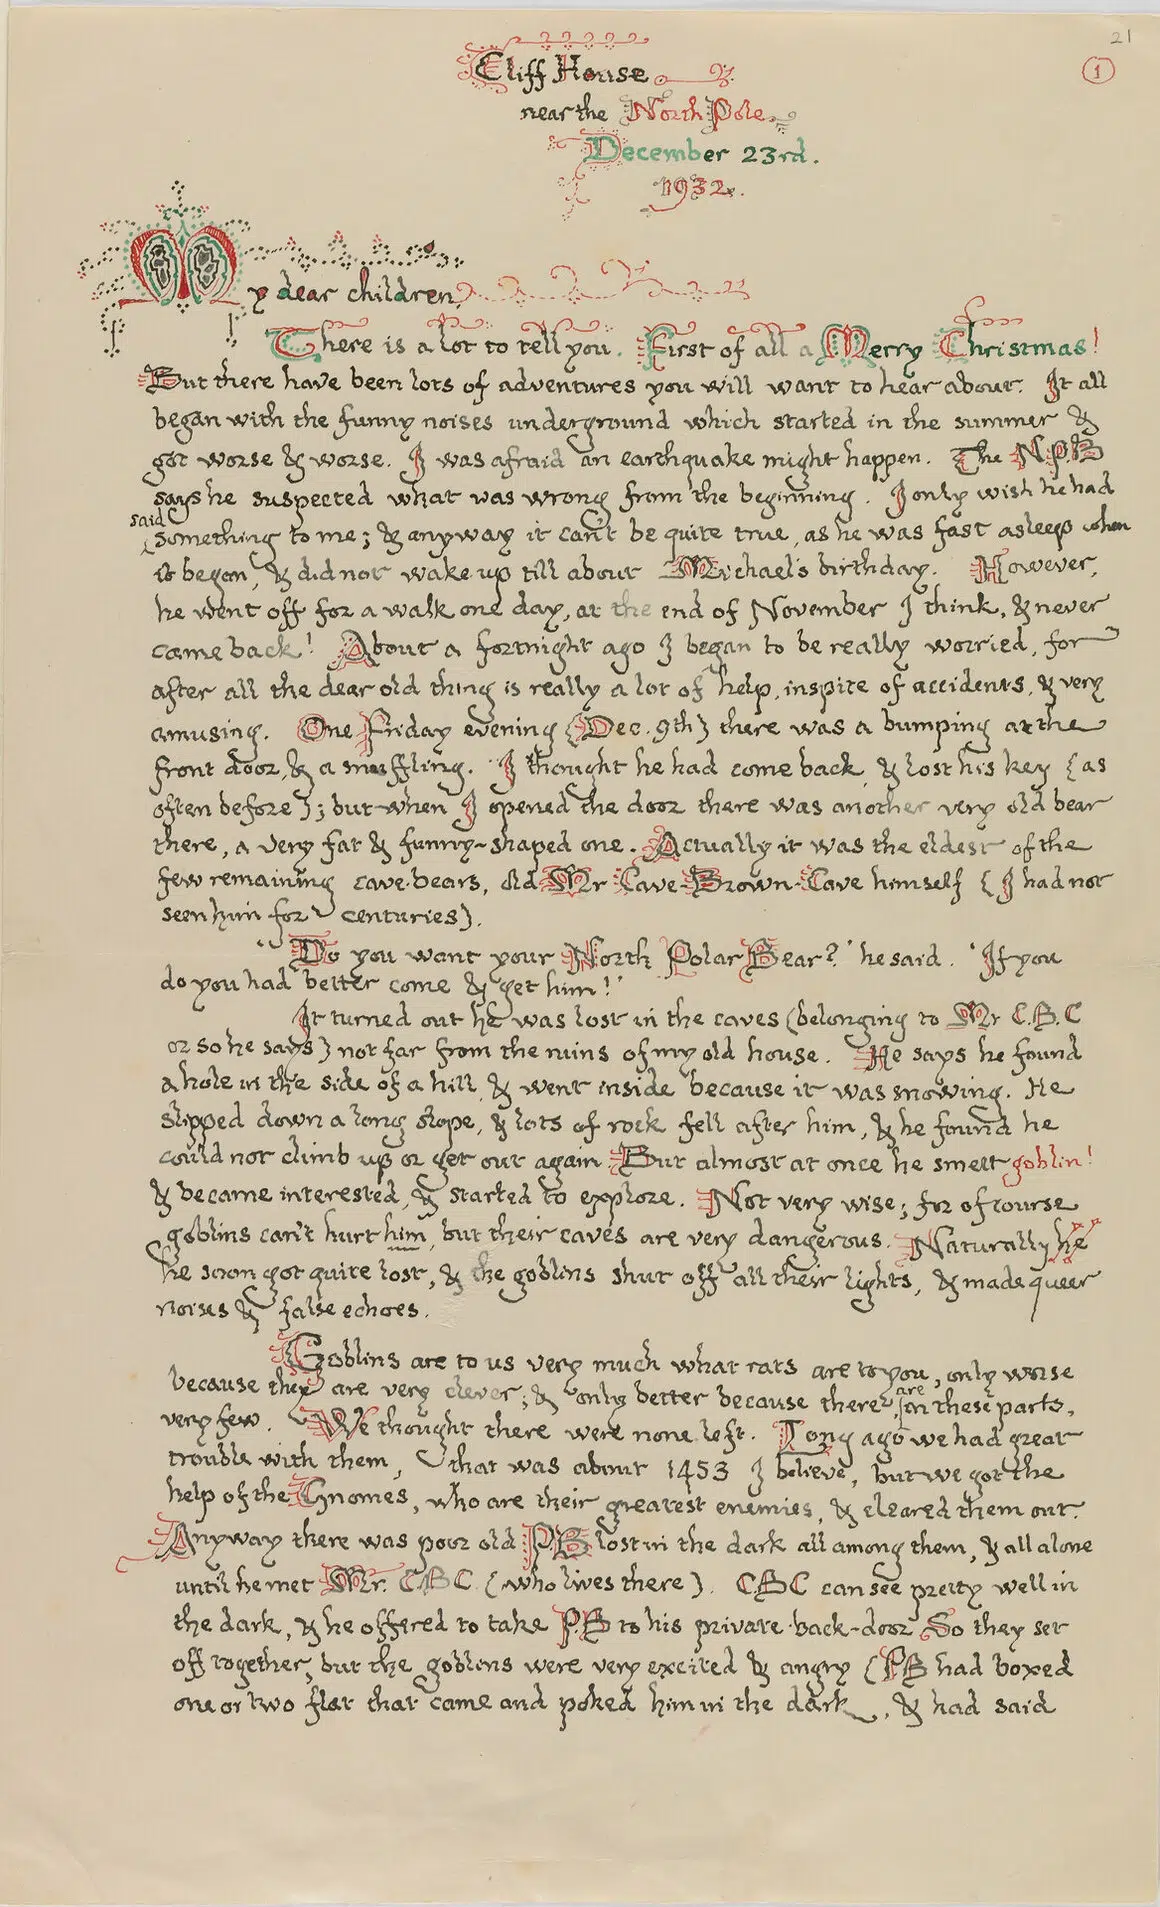 21
1
Cliff House
near the North Pole
December 23rd.
1932.
My dear children,
There is a lot to tell you. First of all a Merry Christmas!
But there have been lots of adventures you will want to hear about. It all
began with the funny noises underground which started in the summer &
got worse & worse. I was afraid an earthquake might happen. The N.P.B
says he suspected what was wrong from the beginning. I only wish he had
said
something to me; & anyway it can't be quite true, as he was fast asleep when
it began, & did not wake up till about Michael's birthday. However,
he went off for a walk one day, at the end of November I think, & never
came back! About a fortnight ago I began to be really worried, for
after all the dear old thing is really a lot of help, inspite of accidents, & very
amusing. One Friday evening (Dec. 9th) there was a bumping at the
front door, & a snuffling. I thought he had come back & lost his key (as
often before); but when I opened the door there was another very old bear
there, a very fat & funny-shaped one. Actually it was the eldest of the
few remaining cave-bears, old Mr Cave-Brown-Cave himself (I had not
seen him for centuries).
"Do you want your North Polar Bear?" he said. "If you
do you had better come & get him!"
It turned out he was lost in the caves (belonging to Mr C.B.C
or so he says) not far from the ruins of my old house. He says he found
a hole in the side of a hill & went inside because it was snowing. He
slipped down a long slope, & lots of rock fell after him, & he found he
could not climb up or get out again But almost at once he smelt goblin!
& became interested, & started to explore. Not very wise; for of course
goblins can't hurt him, but their caves are very dangerous. Naturally he
he soon got quite lost, & the goblins shut off all their lights, & made queer
noises & false echoes.
Goblins are to us very much what rats are to you, only worse
because they are very clever; & only better because there are in these parts,
very few. We thought there were none left. Long ago we had great
trouble with them, that was about 1453 I believe, but we got the
help of the Gnomes, who are their greatest enemies, & cleared them out.
Anyway there was poor old P.B lost in the dark all among them, & all alone
until he met Mr. C.B.C. (who lives there). CBC can see pretty well in
the dark, & he offered to take P.B to his private back-door So they set
off together, but the goblins were very excited & angry (PB had boxed
one or two flat that came and poked him in the dark, & had said